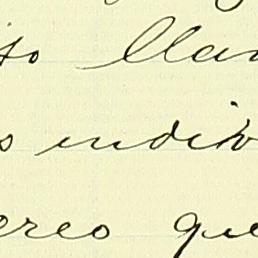 so llam
s indiv
ereo que